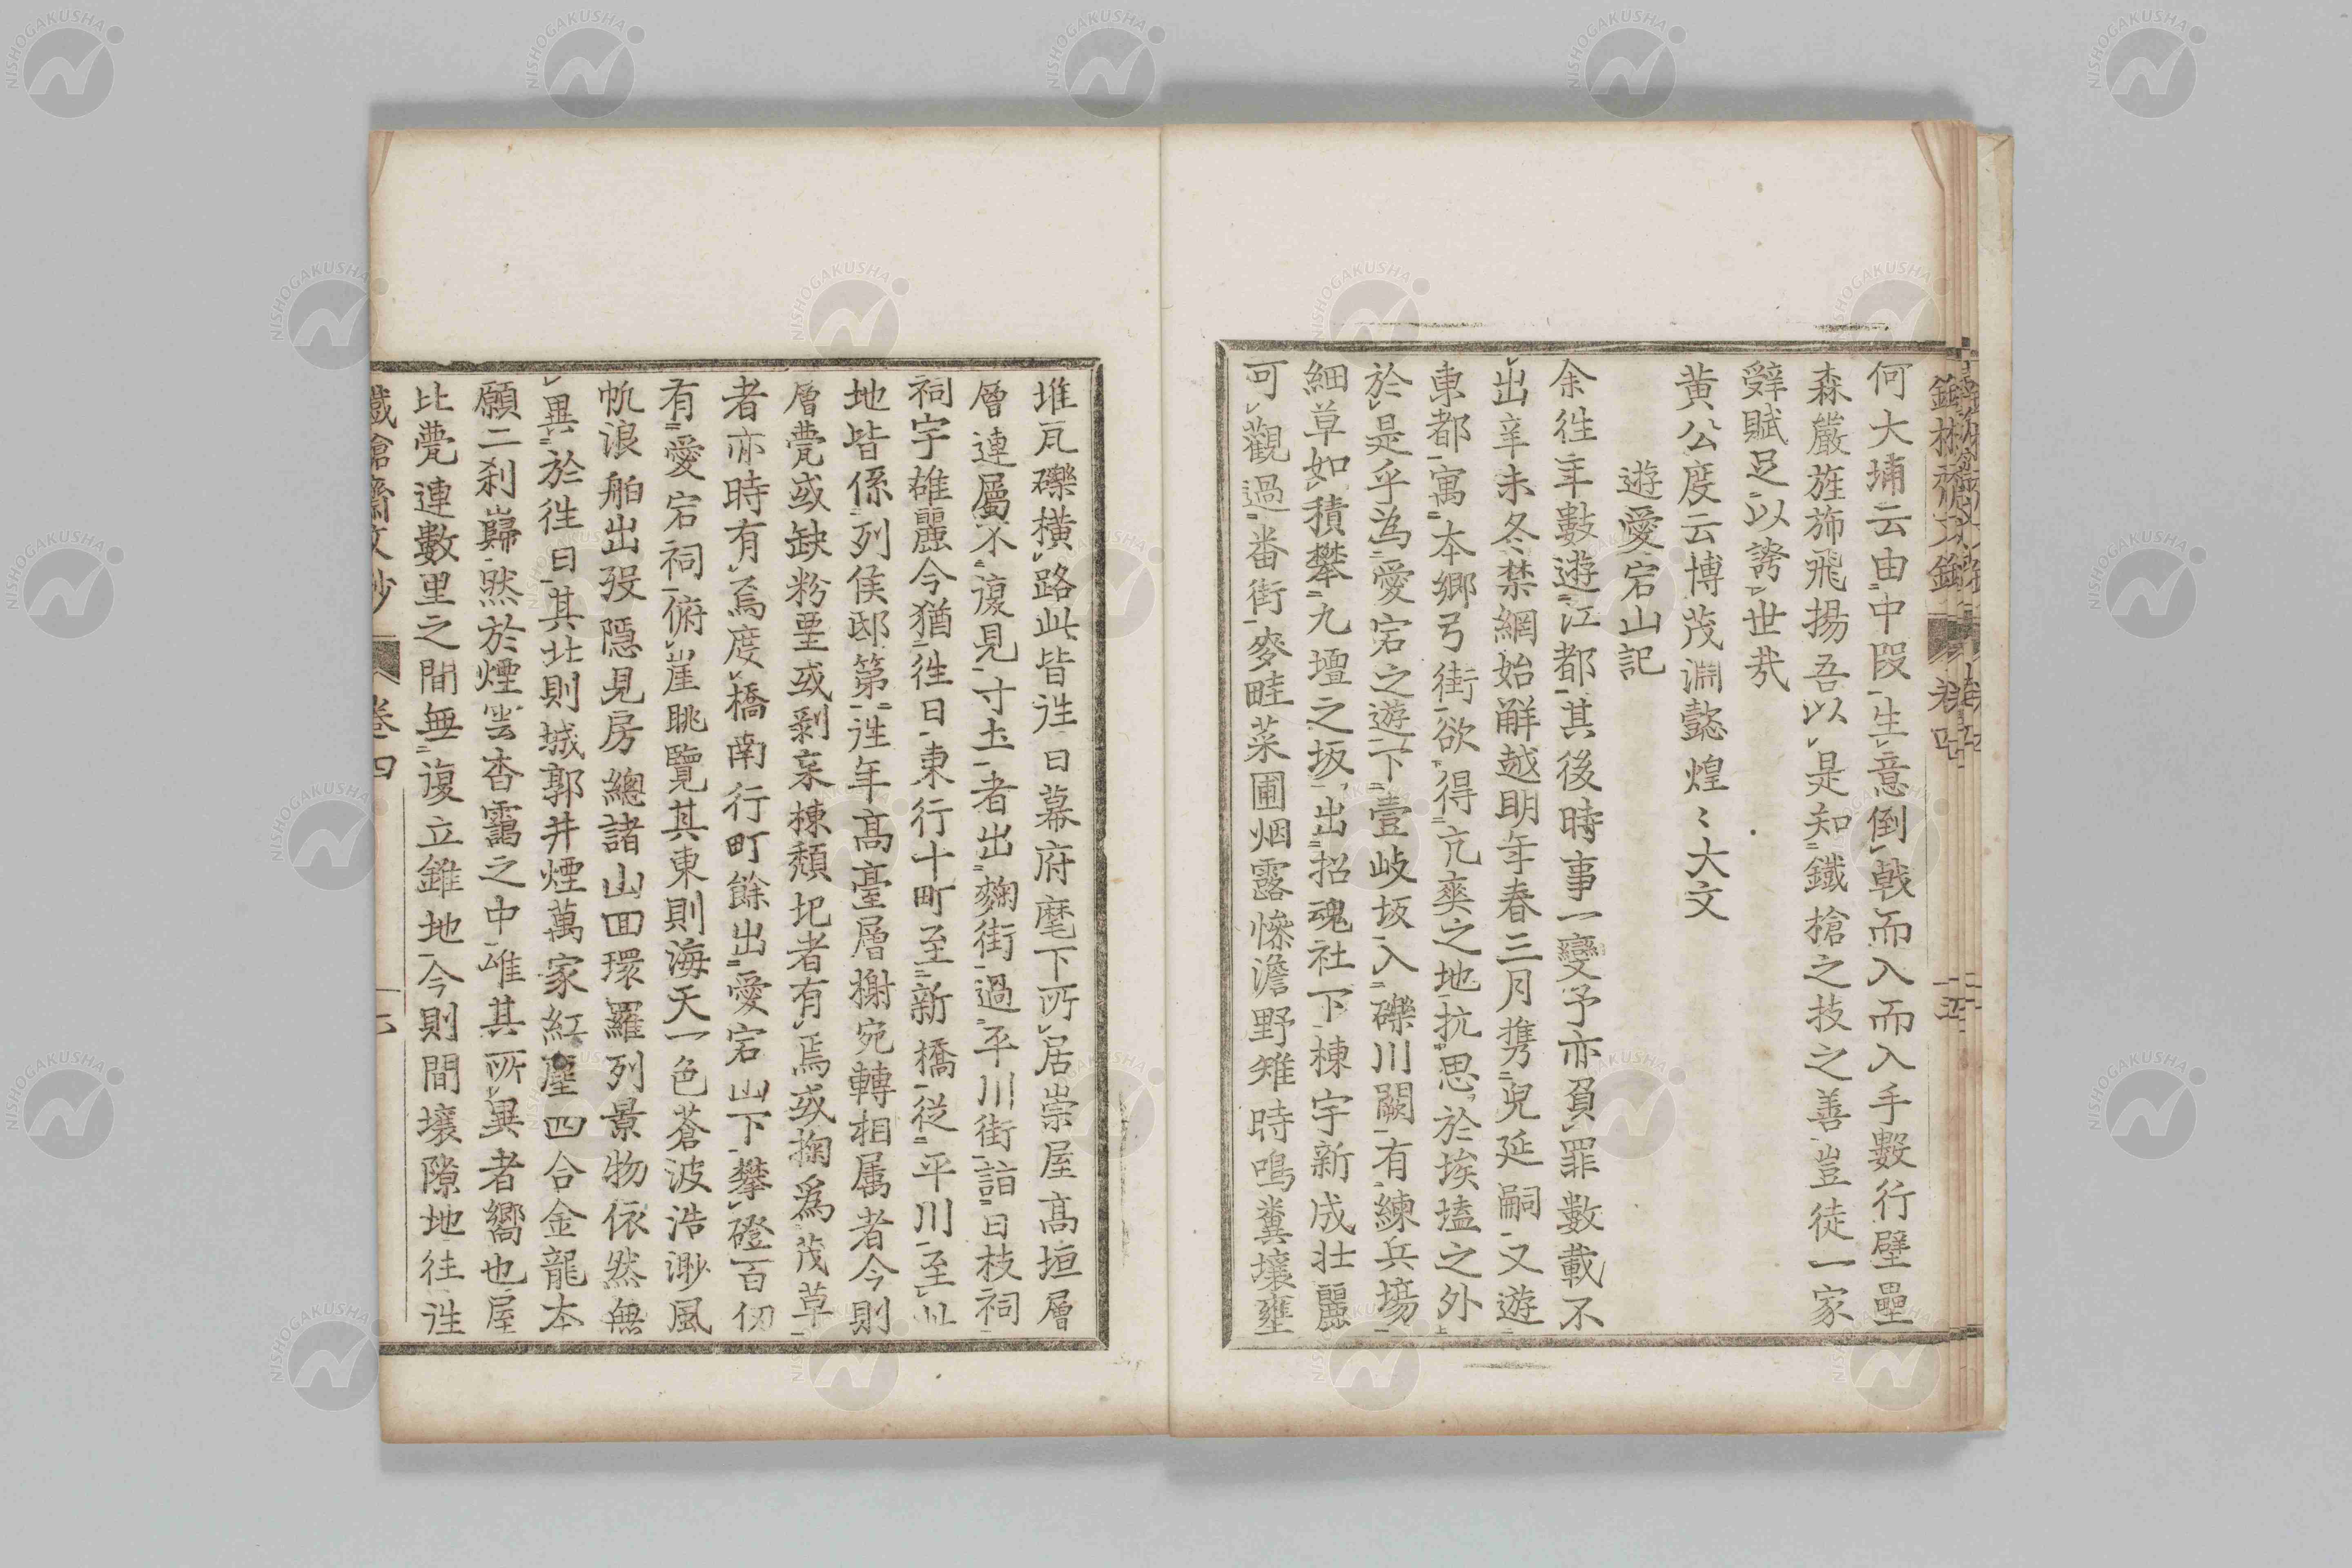 何大埔云由中段生意倒戟而入而入手數行壁壘
森嚴旌斾飛揚吾以是知鐵槍之技之善豈徒一家
辭賦足以誇世㢤
黃公度云博茂淵懿煌〻大文
遊愛宕山記
余徃年數遊江都其後時事一變予亦負罪數載不
出辛未冬禁網始解越明年春三月携兒延嗣又遊
東都寓本郷弓街欲得亢爽之地抗思於埃壒之外
於是乎為愛宕之遊下壹岐坂入礫川闕有練兵場
細草如積攀九壇之坂出招魂社下棟宇新成壮麗
可觀過番街麥畦菜圃烟露慘澹野雉時鳴糞壤壅
堆瓦礫橫路此皆徃日幕府麾下所居崇屋高垣層
層連屬不復見寸土者出麴街過平川街詣日枝祠
祠宇雄麗今猶徃日東行十町至新橋從平川至此
地皆係列侯邸第徃年高臺層榭宛轉相属者今則
層甍或缺粉堊或剥杗棟頽圮者有焉或掬爲茂草
者亦時有焉度橋南行町餘出愛宕山下攀磴百仞
有愛宕祠俯崖眺覽其東則海天一色蒼波浩渺風
帆浪舶出没隱見房總諸山回環羅列景物依然無
異於徃日其北則城郭井煙萬家紅塵四合金龍本
願二刹巋然於煙雲杳靄之中唯其所異者嚮也屋
比甍連數里之間無復立錐地今則間壤隙地往徃
鐵槍齋文鈔 卷四